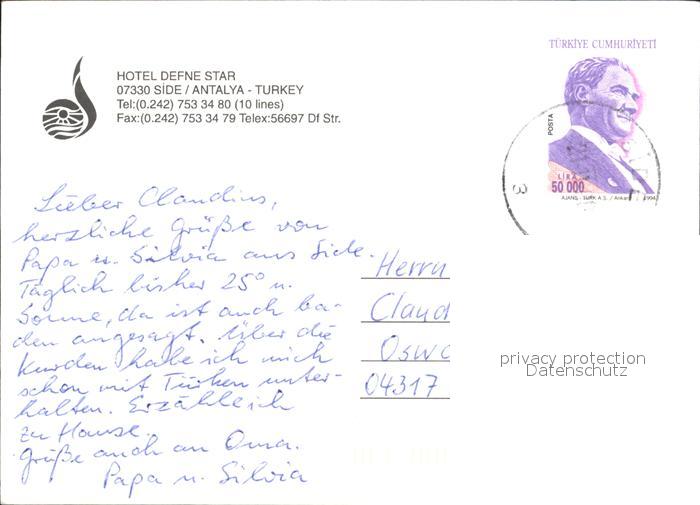 TÜRKİYE CUMHURİYETİ
HOTEL DEFNE STAR
07330 SİDE / ANTALYA - TURKEY
Tel:(0.242) 753 34 80 (10 lines)
Fax:(0.242) 753 34 79 Telex:56697 Df Str.
POSTA
LİRA
50 000
AJANS - TÜRK A.Ş. / Ankara 1994
3
Lieber Claudius,
herzliche Grüße von
Papa u. Silvia aus Side.
Täglich bisher 25° u.
Sonne, da ist auch ba-
den angesagt. Über die
Kurden habe ich mich
schon mit Türken unter-
halten. Erzähle ich
zu Hause.
Grüße auch an Oma.
Papa u. Silvia
Herrn
Claud
Oswa
04317
privacy protection
Datenschutz